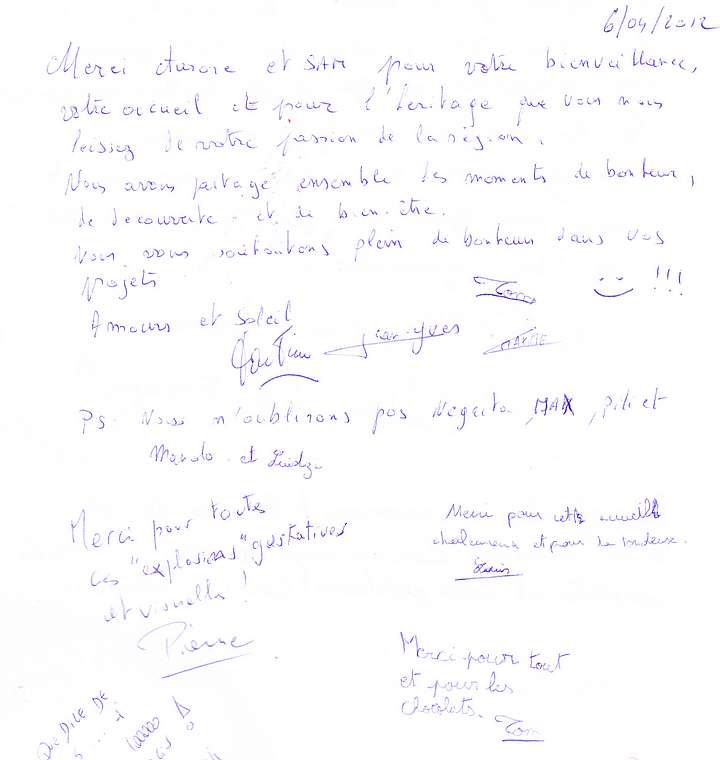 6/04/2012
Merci Aurore et SAM pour votre bienveillance,
votre accueil et pour l'héritage que vous nous
laissez de votre passion de la région.
Nous avons partagé ensemble des moments de bonheur,
de découverte et de bien-être.
Nous vous souhaitons plein de bonheur dans vos
projets
!!!
Tom
Amours et Soleil
Jean-Yves
MAXIME
PS. Nous n'oublirons pas Negrita, MAX, Pili et
Mando et
Merci pour toutes
ces "explosions" gustatives
et visuelles !
Pierre
Merci pour cette accueil
chaleureux et pour la
Merci pour tout
et pour les
chocolats.
Tom
QUE DILE DE